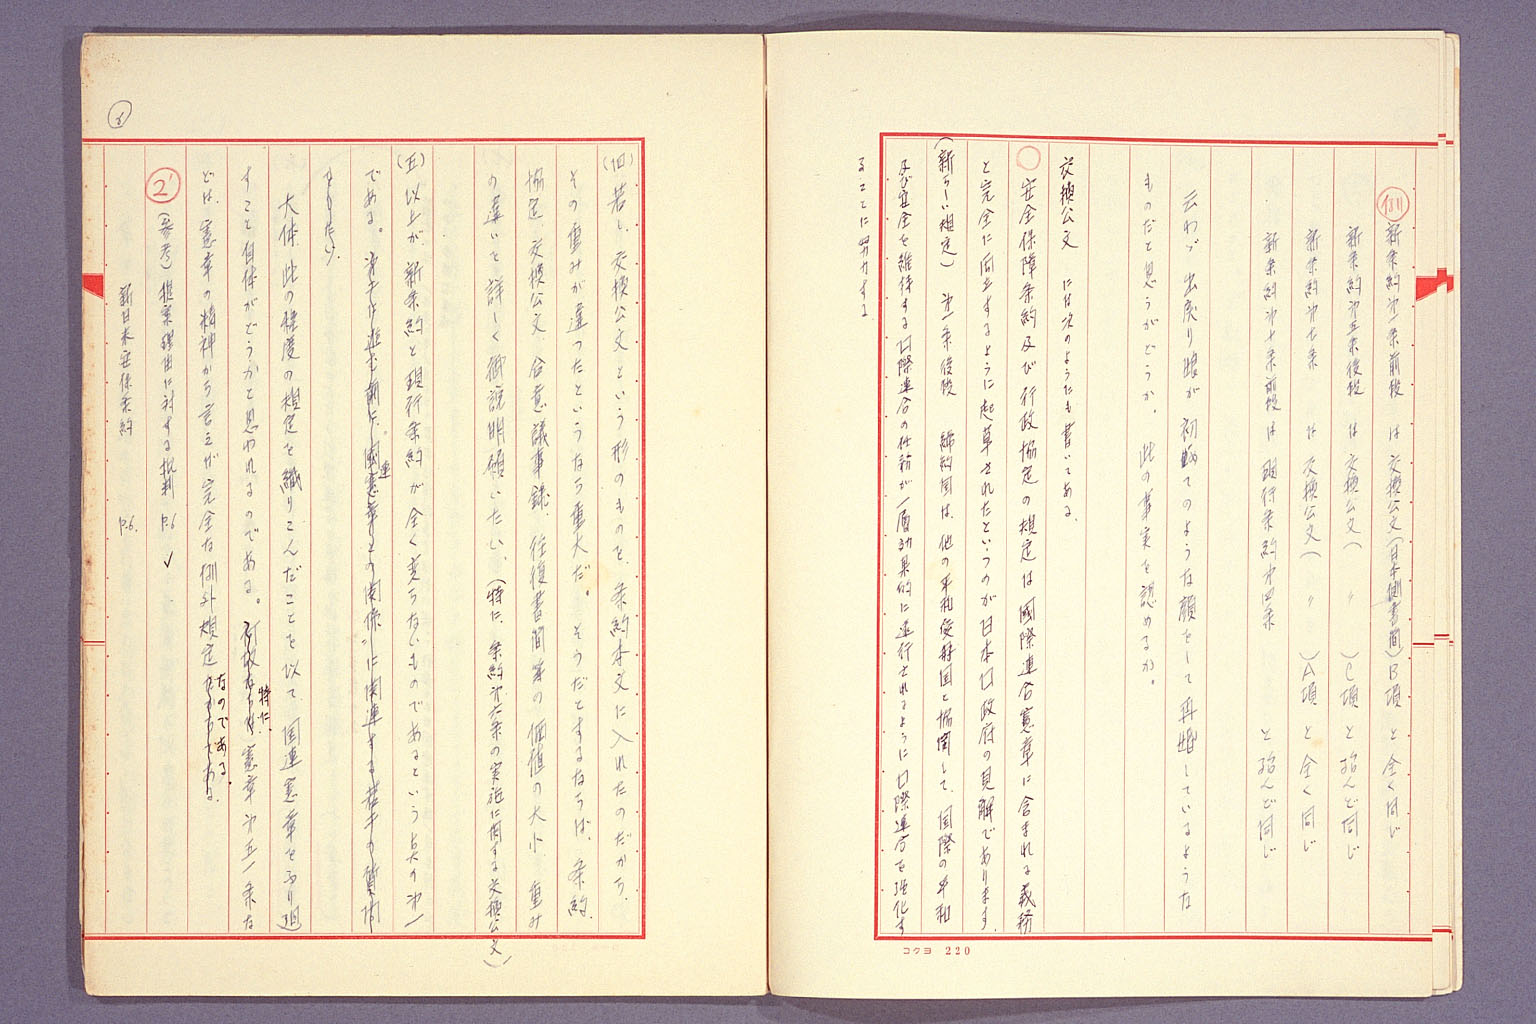 例 新条約第一条前段 は 交換公文(日本側書簡)B項 と全く同じ
新条約第五条後段 は 交換公文( 〃 )C項 と殆んど同じ
新条約第七条 は 交換公文( 〃 )A項 と全く同じ
新条約第十条前段 は 現行条約第四条 と殆んど同じ
云わゞ 出戻り娘が 初めてのような顔をして再婚しているような
ものだと思うがどうか。 此の事実を認めるか。
交換公文 には次のようにも書いてある。
○ 安全保障条約及び行政協定の規定は国際連合憲章に含まれる義務
と完全に両立するように起草されたというのが日本国政府の見解であります。
(新らしい規定) 第一条後段 締約国は、他の平和愛好国と協同して、国際の平和
及び安全を維持する国際連合の任務が一層効果的に遂行されるように国際連合を強化す
ることに努力する
コクヨ 220
(四) 若し、交換公文という形のものを、条約本文に入れたのだから、
その重みが違つたというなら重大だ。そうだとするならば、条約、
協定、交換公文、合意議事録、往復書簡等の価値の大小、重み
の違いを詳しく御説明願いたい。(特に、条約第六条の実施に関する交換公文)
(五) 以上が、新条約と現行条約が全く変らないものであるという点の第一
である。 次に進む前に、国連憲章との関係に関連する若干の質問
をしたい。
大体、此の程度の規定を織りこんだことを以て、国連憲章をふり廻
すこと自体がどうかと思われるのである。 特に、憲章第五一条な
どは、憲章の精神から言えば完全な例外規定なのである。
2' (参考) 提案理由に対する批判 P.6 ✓
新日米安保条約 P.6.